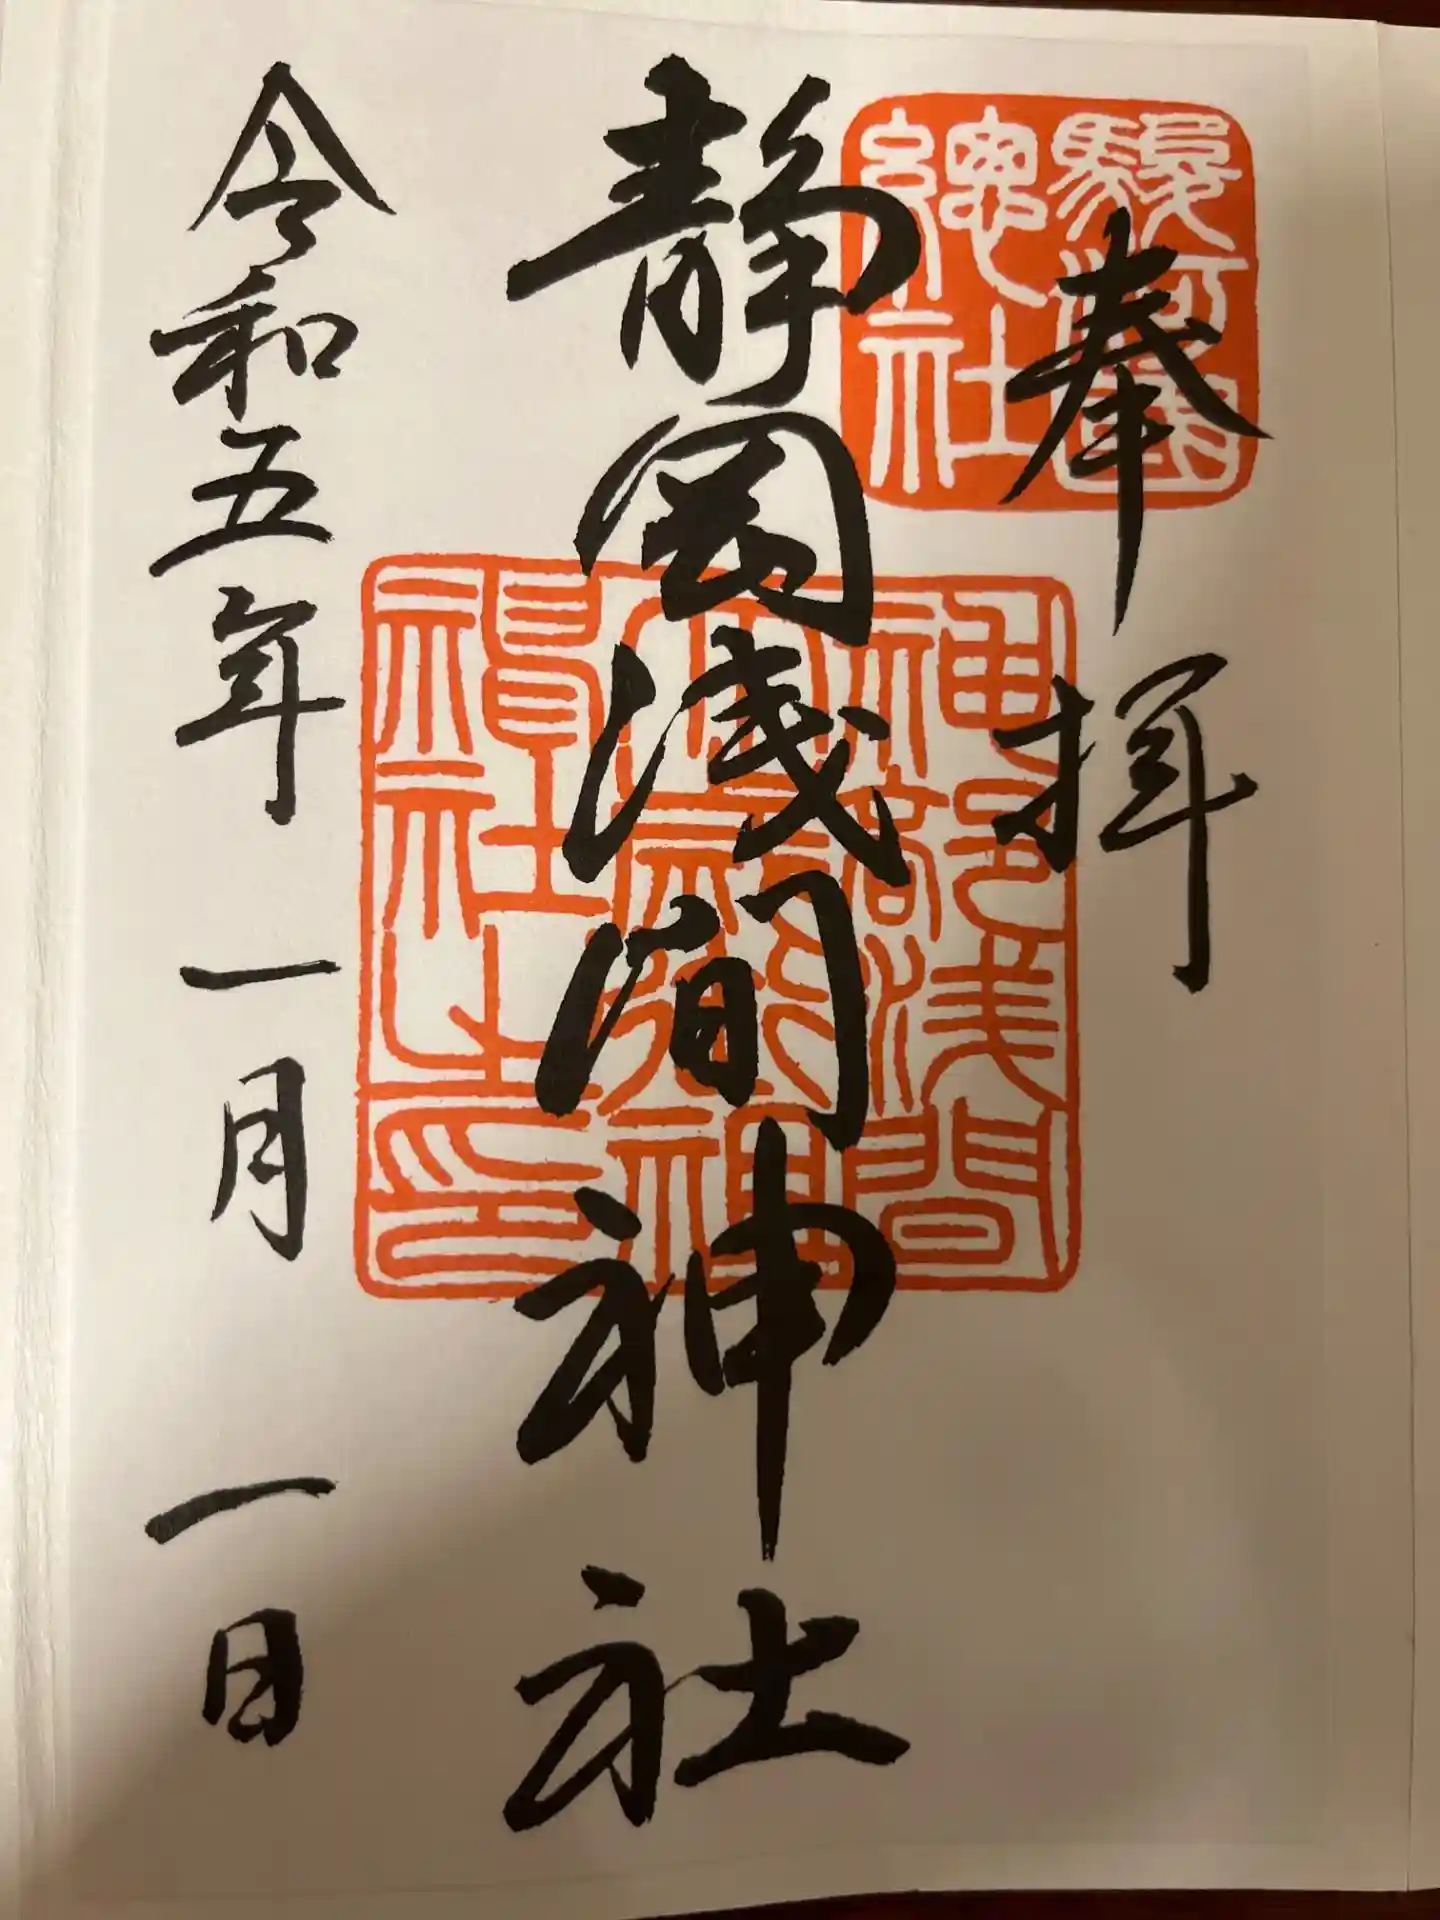 奉拝
駿河國
總社
静岡浅間神社
神部浅間
大歳御祖神
社之印
令和五年一月一日